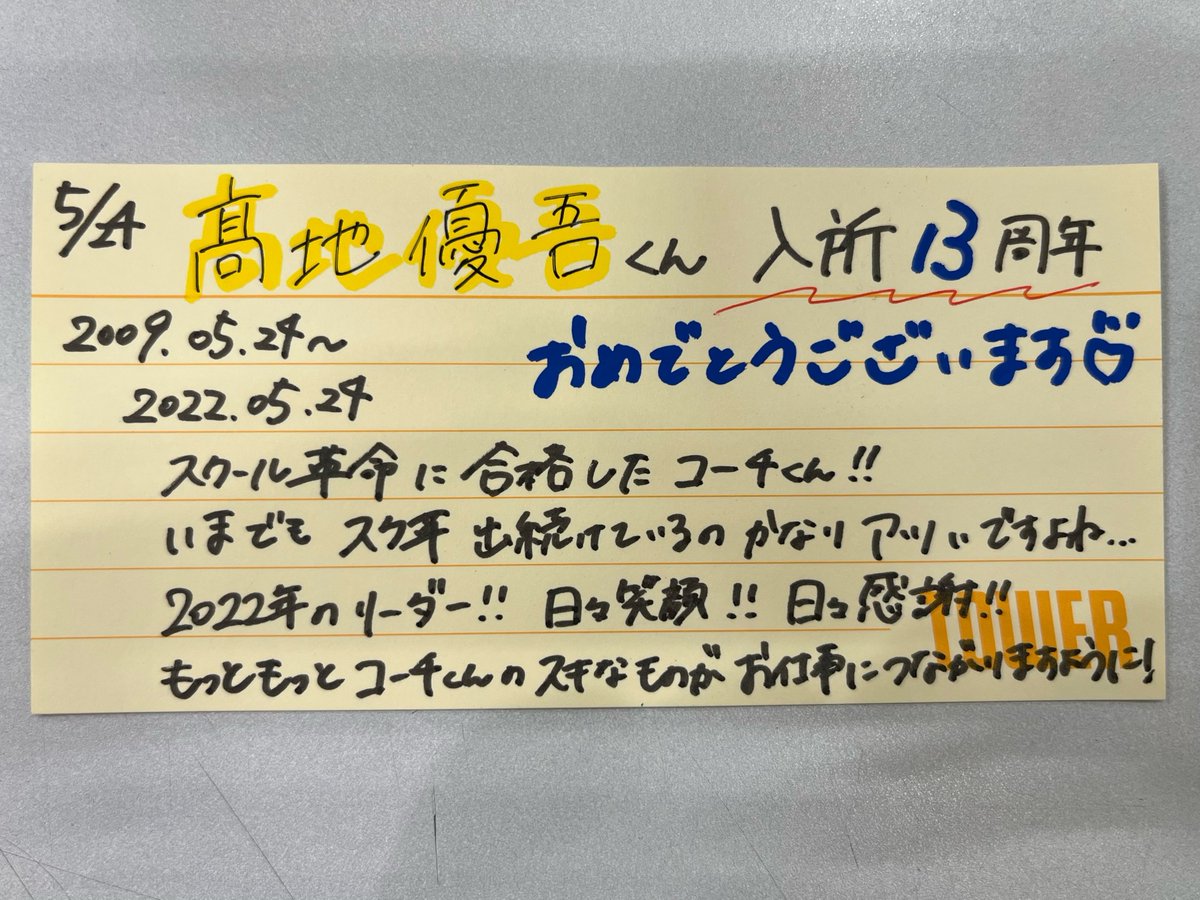 5/24 髙地優吾くん 入所13周年
2009.05.24〜
おめでとうございます♡
2022.05.24
スクール革命に合格したコーチくん!!
いまでも スク革 出続けているの かなり アツいですよね...
2022年のリーダー!! 日々笑顔!! 日々感謝!!
TOWER
もっともっとコーチくんの スキなものが お仕事につながりますように!